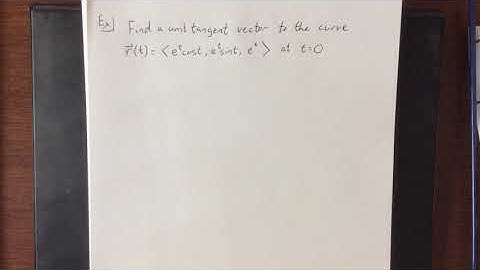 Ex) Find a unit tangent vector to the curve
r⃗(t) = ⟨e^t cost, e^t sint, e^t⟩ at t=0